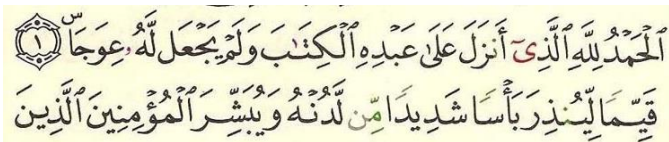 ٱلۡحَمۡدُ لِلَّهِ ٱلَّذِىٓ أَنزَلَ عَلَىٰ عَبۡدِهِ ٱلۡكِتَٰبَ وَلَمۡ يَجۡعَل لَّهُۥ عِوَجَاۜ ١
قَيِّمٗا لِّيُنذِرَ بَأۡسٗا شَدِيدٗا مِّن لَّدُنۡهُ وَيُبَشِّرَ ٱلۡمُؤۡمِنِينَ ٱلَّذِينَ